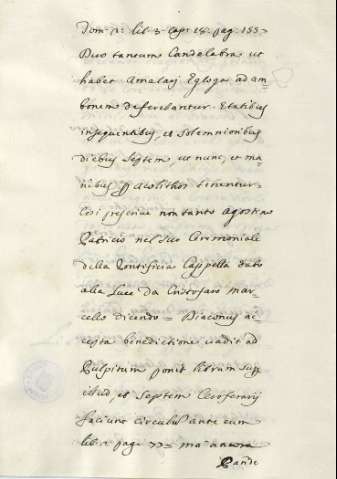 Dom. n: lib. 3. cap: 18. pag. 155.
Duo tantum Candelabra ut
habet Amalarij Egloga ad am=
bonem deferebantur. Etatibus
insequentibus, et solemnioribus
diebus septem ut nunc, et ma=
nibus p Acolithor tenentur.
Così prescrive non tanto Agostino
Patricio nel suo Ceremoniale
della Pontificia Cappella dato
alla Luce da Cristofaro Mar=
cello dicendo = Diaconus ac=
cepta benedictione vadit ad
Pulpitum ponit librum sup
illud, et septem Ceroferarij
faciunt circulu ante eum
lib. pag. 77 = ma ancora
Pande